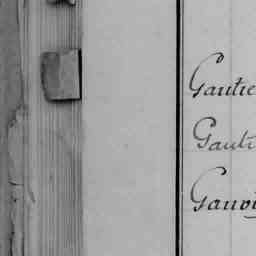 Gautie
Gauti
Gauvi